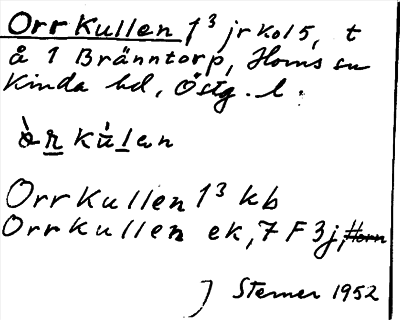 Orrkullen 1³ jrkol5, t
å 1 Bränntorp, Horns sn
Kinda hd, Östg. l.
òrkúlan
Orrkullen 1³ kb
Orrkullen ek, 7 F 3j, Horn
J Sterner 1952